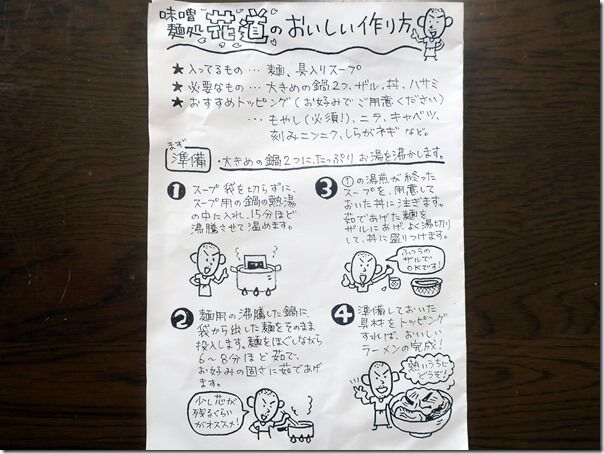 味噌
麺処 花道のおいしい作り方
★入ってるもの…麺、具入りスープ
★必要なもの…大きめの鍋2つ、ザル、丼、ハサミ
★おすすめトッピング(お好みでご用意ください)
…もやし(必須!)、ニラ、キャベツ、
刻みニンニク、しらがネギなど。
まず
準備 ・大きめの鍋2つに、たっぷりお湯を沸かします。
1 スープ袋を切らずに、
スープ用の鍋の熱湯
の中に入れ、15分ほど
沸騰させて温めます。
2 麺用の沸騰した鍋に、
袋から出した麺をそのまま
投入します。麺をほぐしながら
6〜8分ほど茹で、
お好みの固さに茹であげ
ます。
少し芯が
残るくらい
がオススメ!
3 ①の湯煎が終った
スープを、用意して
おいた丼に注ぎます。
茹であげた麺を
ザルにあげ、よく湯切り
して、丼に盛りつけます。
ふつうの
ザルで
OKです!
4 準備しておいた
具材をトッピング
すれば、おいしい
ラーメンの完成!
熱いうちに
どうぞ!